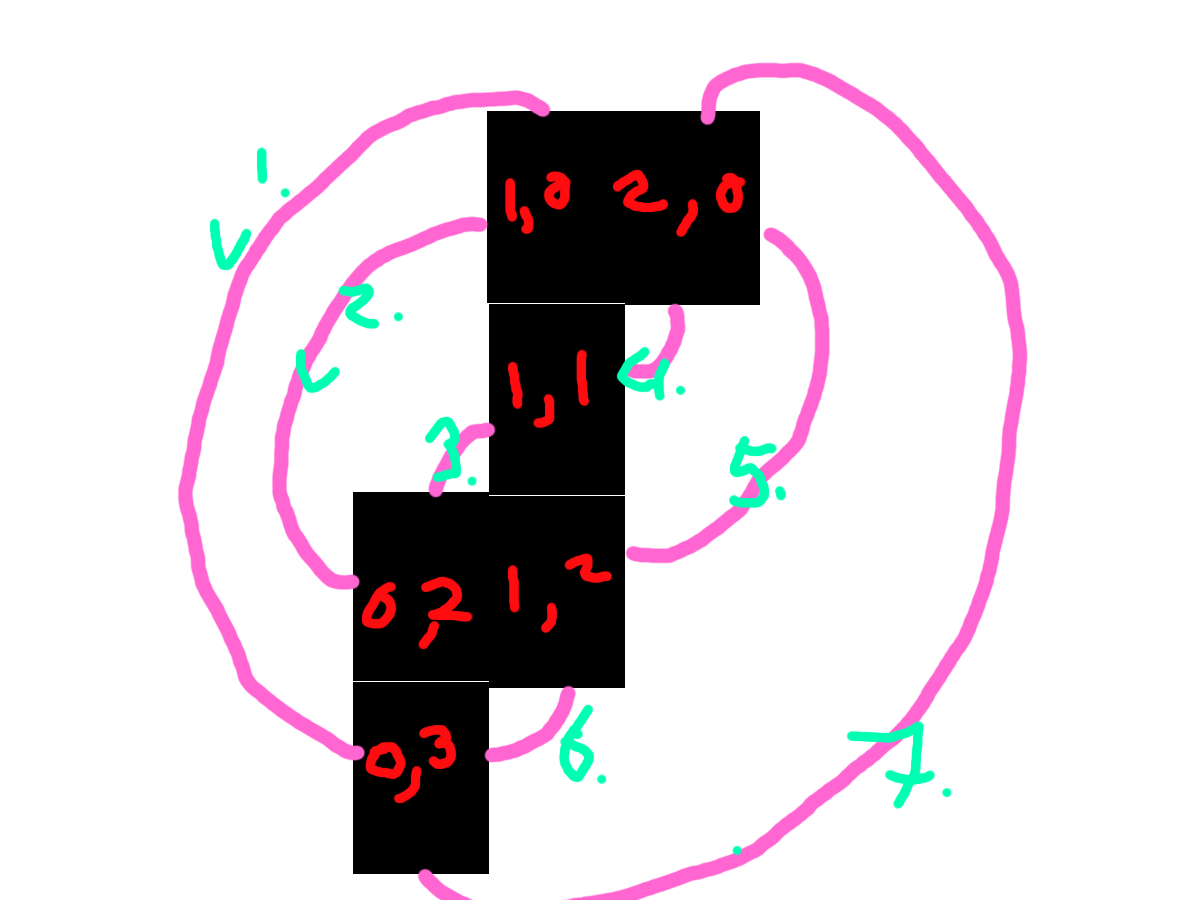 1.
1,0 2,0
2.
1,1 4.
3.
5.
0,2 1,2
0,3 6.
7.